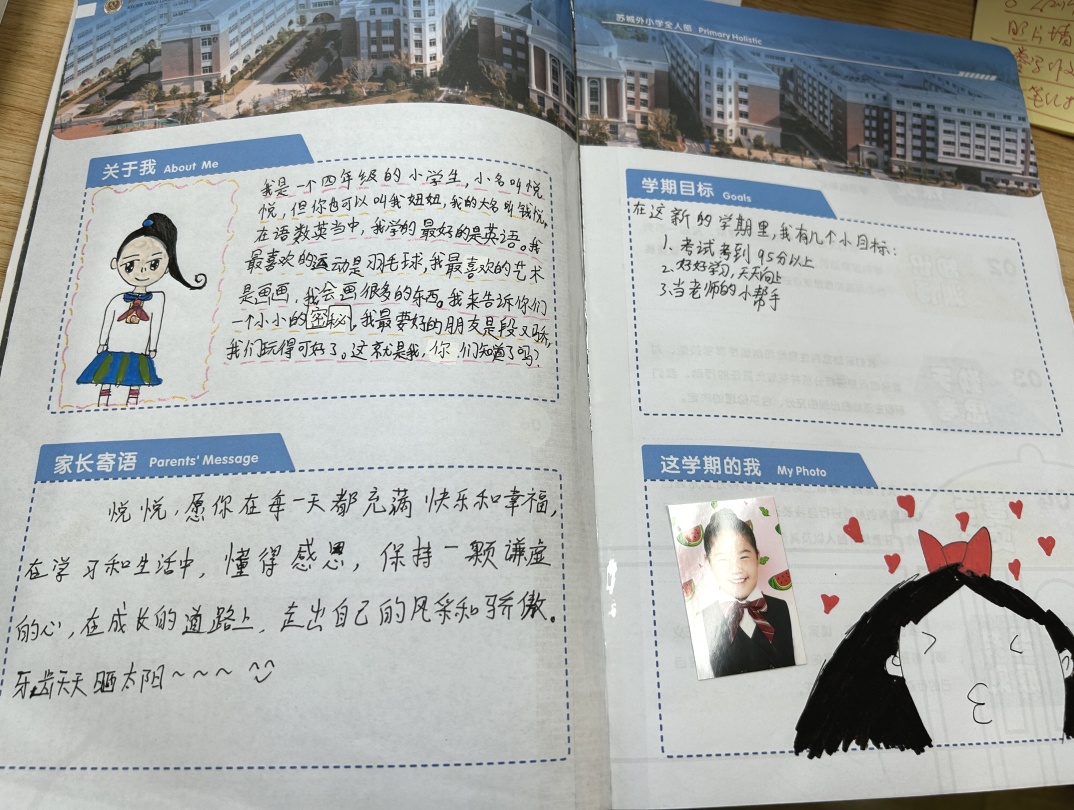 苏城外小学全人部 Primary Holistic
关于我 About Me
我是一个四年级的小学生，小名叫悦
悦，但你也可以叫我妞妞，我的大名叫钱悦。
在语数英当中，我学的最好的是英语。我
最喜欢的运动是羽毛球，我最喜欢的艺术
是画画，我会画很多的东西。我来告诉你们
一个小小的密秘，我最要好的朋友是段又骄，
我们玩得可好了。这就是我，你们知道了吗？
家长寄语 Parents' Message
悦悦，愿你在每一天都充满快乐和幸福，
在学习和生活中，懂得感恩，保持一颗谦虚
的心，在成长的道路上，走出自己的风采和骄傲。
牙齿天天晒太阳~~~
学期目标 Goals
在这新的学期里，我有几个小目标：
1. 考试考到95分以上
2. 好好学习，天天向上
3. 当老师的小帮手
这学期的我 My Photo
照片墙